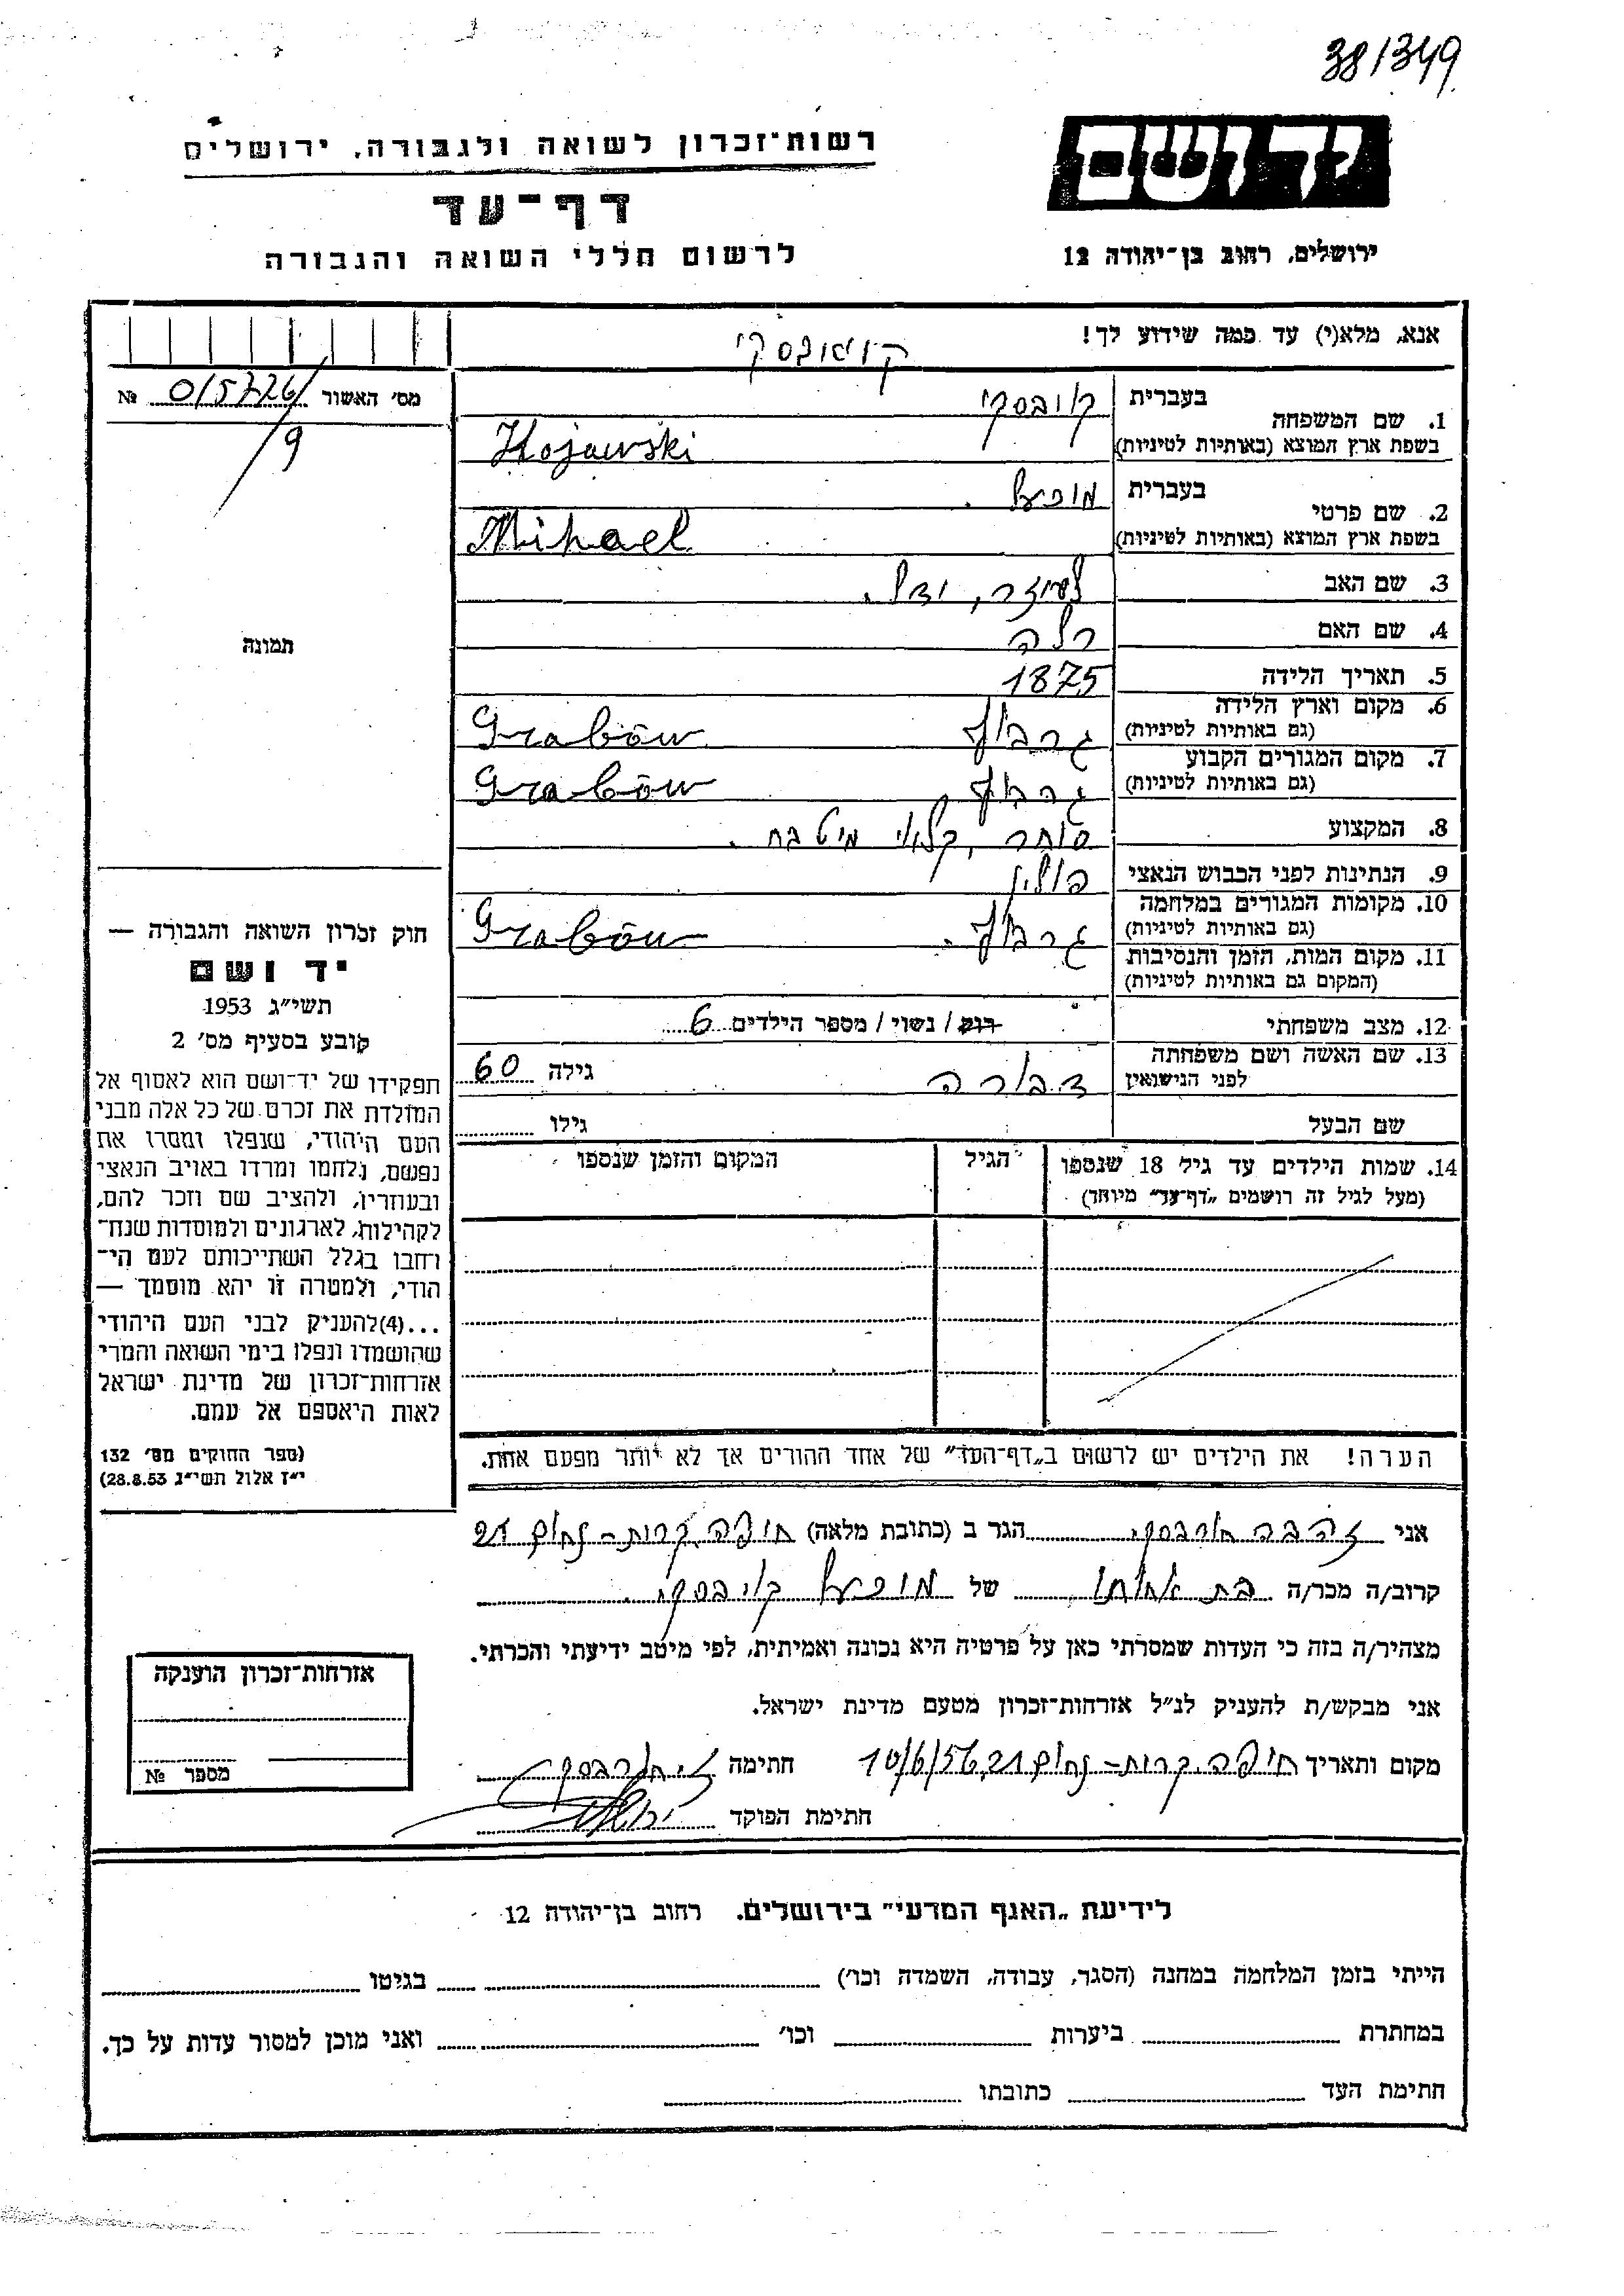 381349
יד ושם
רשות־זכרון לשואה ולגבורה, ירושלים
דף־עד
לרשום חללי השואה והגבורה
ירושלים, רחוב בן־יהודה 12
אנא, מלא(י) עד כמה שידוע לך!
קויאבסקי
מס' האשור № 0/5726/
9
1. שם המשפחה בעברית קויבסקי
בשפת ארץ המוצא (באותיות לטיניות) Kojawski
2. שם פרטי בעברית מיכאל
בשפת ארץ המוצא (באותיות לטיניות) Mihael
3. שם האב
4. שם האם
5. תאריך הלידה 1875
6. מקום וארץ הלידה
(גם באותיות לטיניות) גרבוף Grabōw
7. מקום המגורים הקבוע
(גם באותיות לטיניות) גרבוף Grabōw
8. המקצוע סוחר, חקלאי
9. הנתינות לפני הכבוש הנאצי פולין
10. מקומות המגורים במלחמה
(גם באותיות לטיניות) גרבוף. Grabōw
11. מקום המות, הזמן והנסיבות
(המקום גם באותיות לטיניות)
12. מצב משפחתי רוק / נשוי / מספר הילדים 6
13. שם האשה ושם משפחתה
לפני הנישואין דבורה גילה 60
שם הבעל גילו
14. שמות הילדים עד גיל 18 שנספו
(מעל לגיל זה רושמים „דף־עד" מיוחד)
הגיל
המקום והזמן שנספו
תמונה
חוק זכרון השואה והגבורה —
יד ושם
תשי״ג 1953
קובע בסעיף מס' 2
תפקידו של יד־ושם הוא לאסוף אל
המולדת את זכרם של כל אלה מבני
העם היהודי, שנפלו ומסרו את
נפשם, נלחמו ומרדו באויב הנאצי
ובעוזריו, ולהציב שם וזכר להם,
לקהילות, לארגונים ולמוסדות שנח־
רחבו בגלל השתייכותם לעם הי־
הודי, ולמטרה זו יהא מוסמך —
...(4) להעניק לבני העם היהודי
שהושמדו ונפלו בימי השואה והמרי
אזרחות־זכרון של מדינת ישראל
לאות היאספם אל עמם.
(ספר החוקים מס' 132
י״ז אלול תשי״ג 28.8.53)
הערה! את הילדים יש לרשום ב„דף־העד" של אחד ההורים אך לא יותר מפעם אחת.
אני זהבה הגר ב (כתובת מלאה) חיפה, קרית־נחום 21
קרוב/ה מכר/ה בת אחותו של מיכאל קויבסקי.
מצהיר/ה בזה כי העדות שמסרתי כאן על פרטיה היא נכונה ואמיתית, לפי מיטב ידיעתי והכרתי.
אני מבקש/ת להעניק לנ״ל אזרחות־זכרון מטעם מדינת ישראל.
מקום ותאריך חיפה, קרית־נחום 21, 10/6/56 חתימה
חתימת הפוקד
אזרחות־זכרון הוענקה
מספר №
לידיעת „האגף המדעי" בירושלים. רחוב בן־יהודה 12
הייתי בזמן המלחמה במחנה (הסגר, עבודה, השמדה וכו') בגיטו
במחתרת ביערות וכו' ואני מוכן למסור עדות על כך.
חתימת העד כתובתו